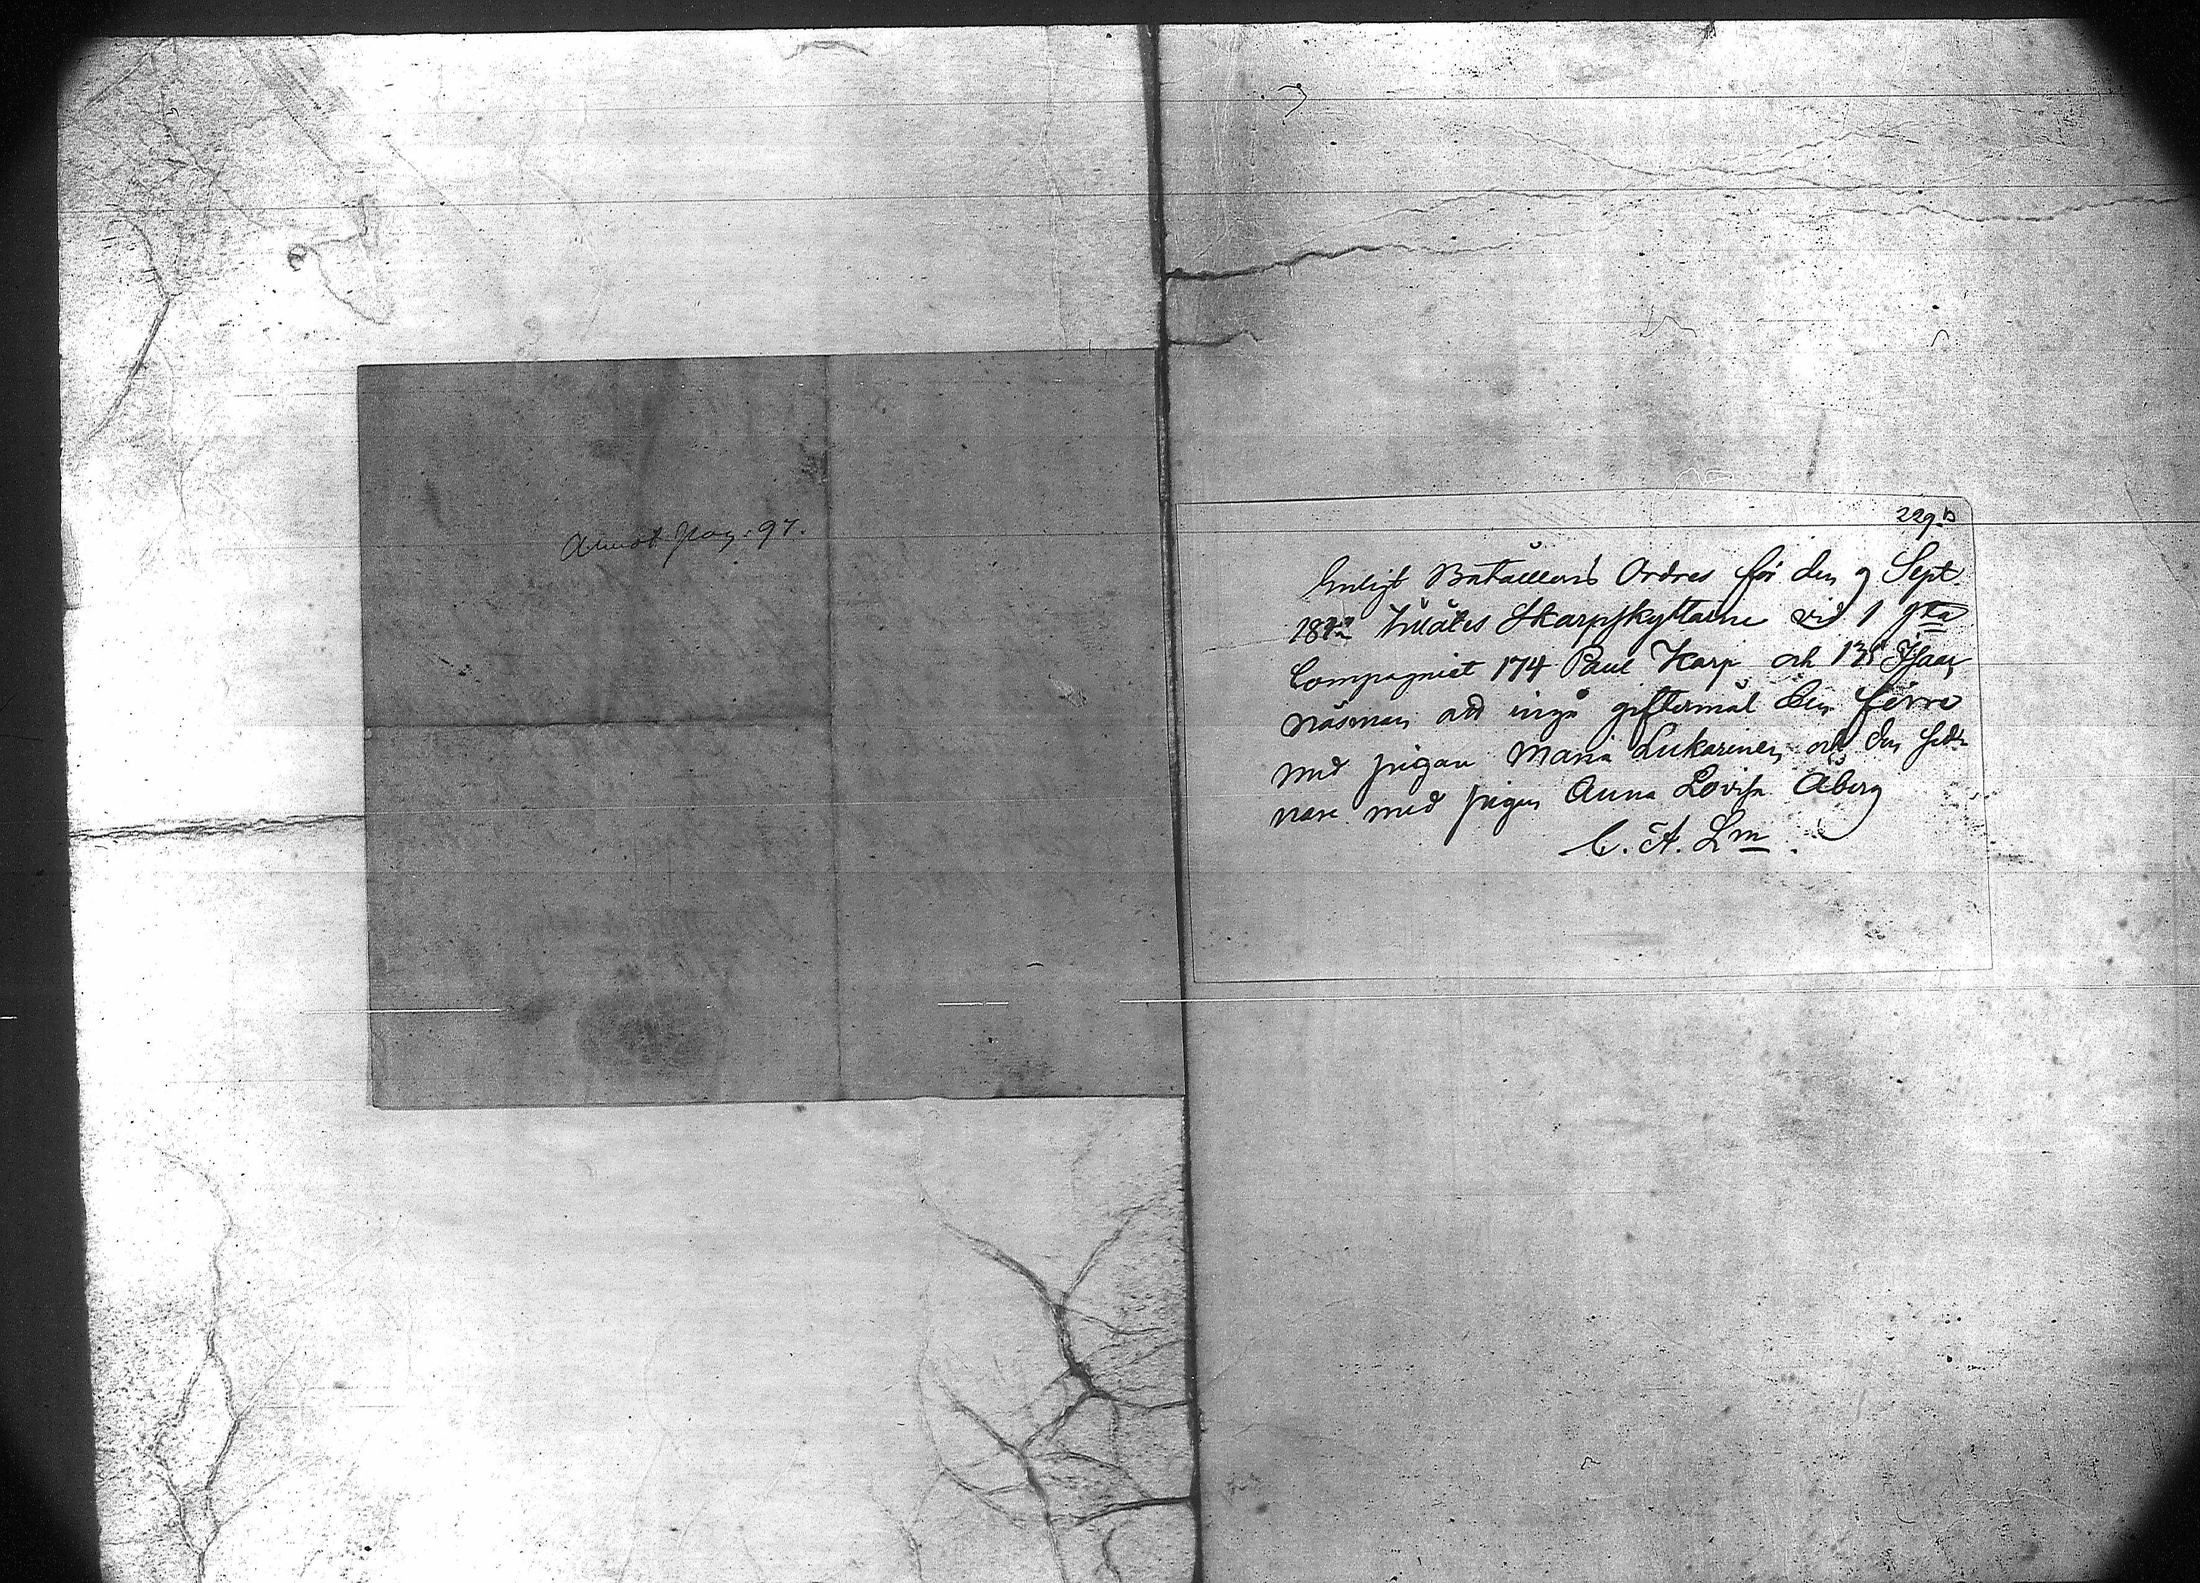 pag. 97.
229.b
Enligt Bataillons Ordres för den 9 Sept.
tillåtes Skarpskyttarne vid 1sta
Compagniet 174 Paul Karp och 135 Isaac
Näsman att ingå giftermål den förre
med pigan Maria Lukarinen och den sed-
nare med pigan Anna Lovisa Åberg
C. A. Lm.